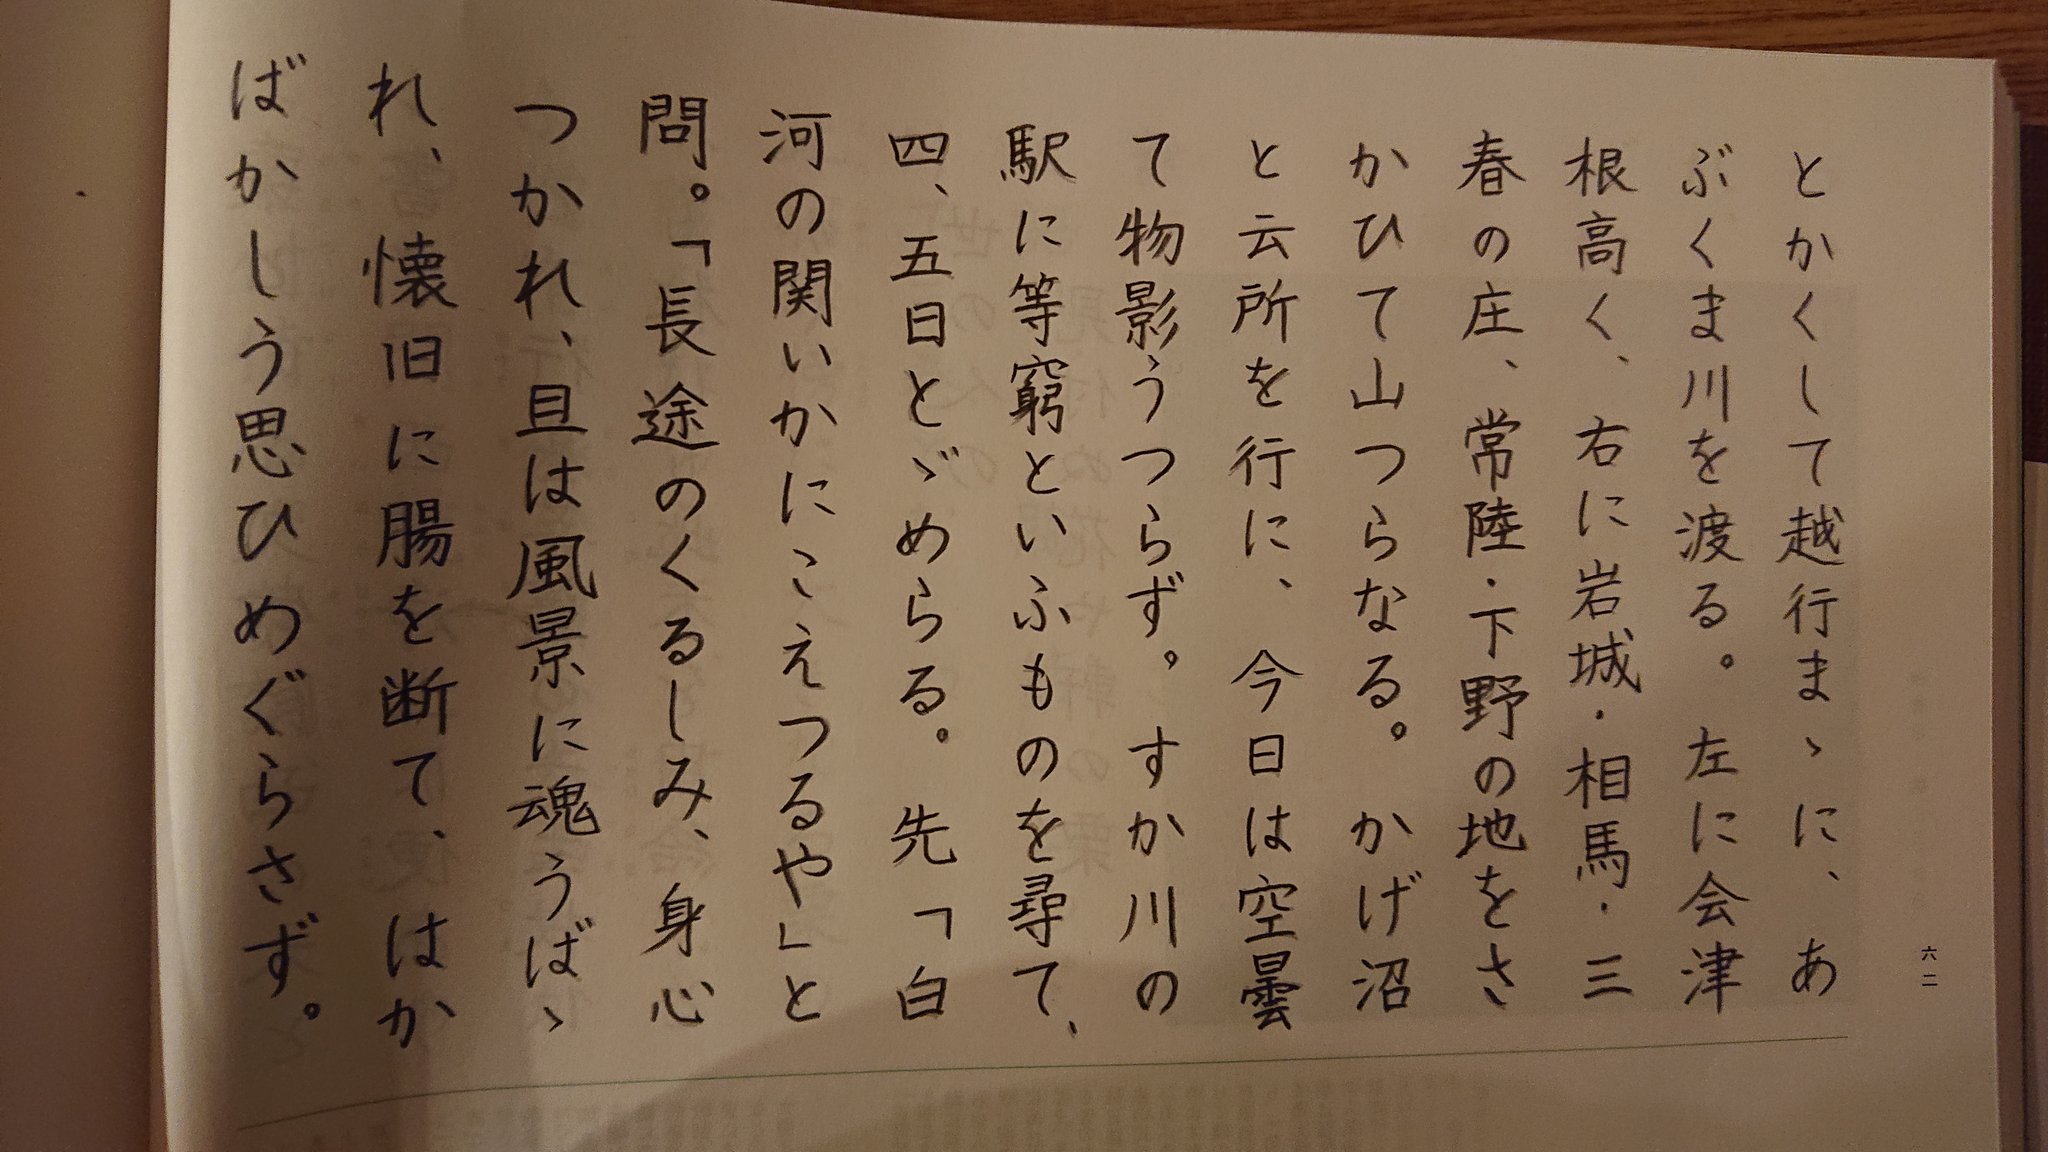 とかくして越行まゝに、あ
ぶくま川を渡る。左に会津
根高く、右に岩城・相馬・三
春の庄、常陸・下野の地をさ
かひて山つらなる。かげ沼
と云所を行に、今日は空曇
て物影うつらず。すか川の
駅に等窮といふものを尋て、
四、五日とゞめらる。先「白
河の関いかにこえつるや」と
問。「長途のくるしみ、身心
つかれ、且は風景に魂うばゝ
れ、懐旧に腸を断て、はか
ばかしう思ひめぐらさず。
六二